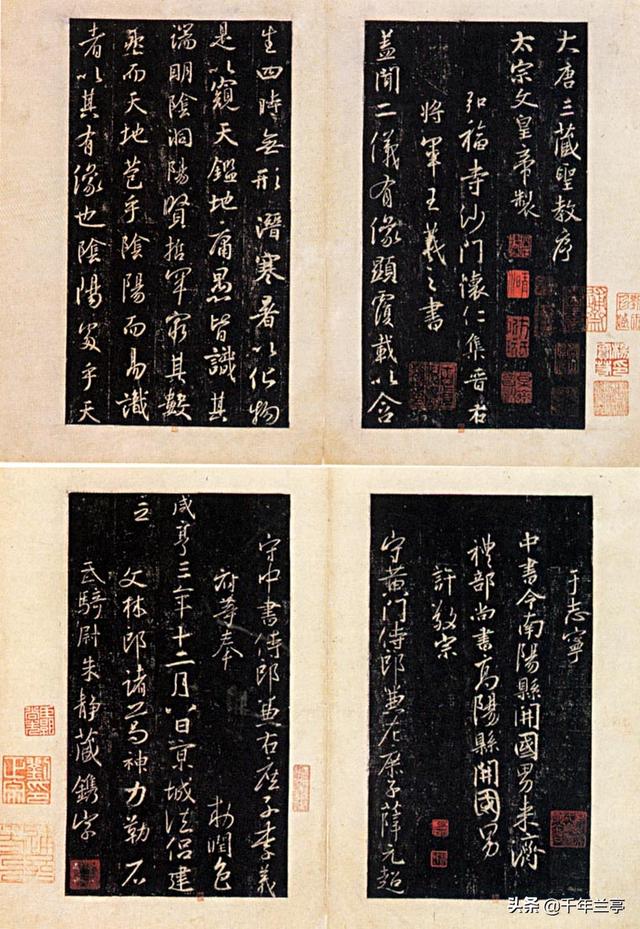 大唐三藏聖教序
太宗文皇帝製
弘福寺沙門懷仁集晉右
將軍王羲之書
蓋聞二儀有像顯覆載以含
生四時無形潛寒暑以化物
是以窺天鑑地庸愚皆識其
端明陰洞陽賢哲罕窮其數
然而天地苞乎陰陽而易識
者以其有像也陰陽處乎天
于志寧
中書令南陽縣開國男来濟
禮部尚書高陽縣開國男
許敬宗
守黄門侍郎兼左庶子薛元超
守中書侍郎兼右庶子李義
府等奉 勑潤色
咸亨三年十二月八日京城法侶建
立
文林郎諸葛神力勒石
武騎尉朱静藏鐫字
头条@千年兰亭